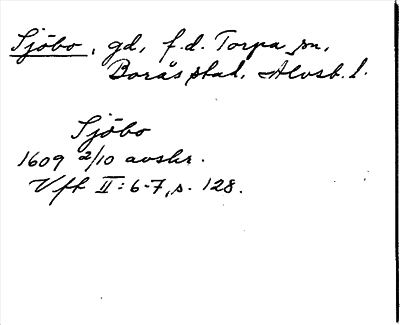 Sjöbo, gd, f.d. Torpa sn,
Borås stad, Älvsb. l.
Sjöbo
1609 2/10 avskr.
Vft II:6-7, s. 128.